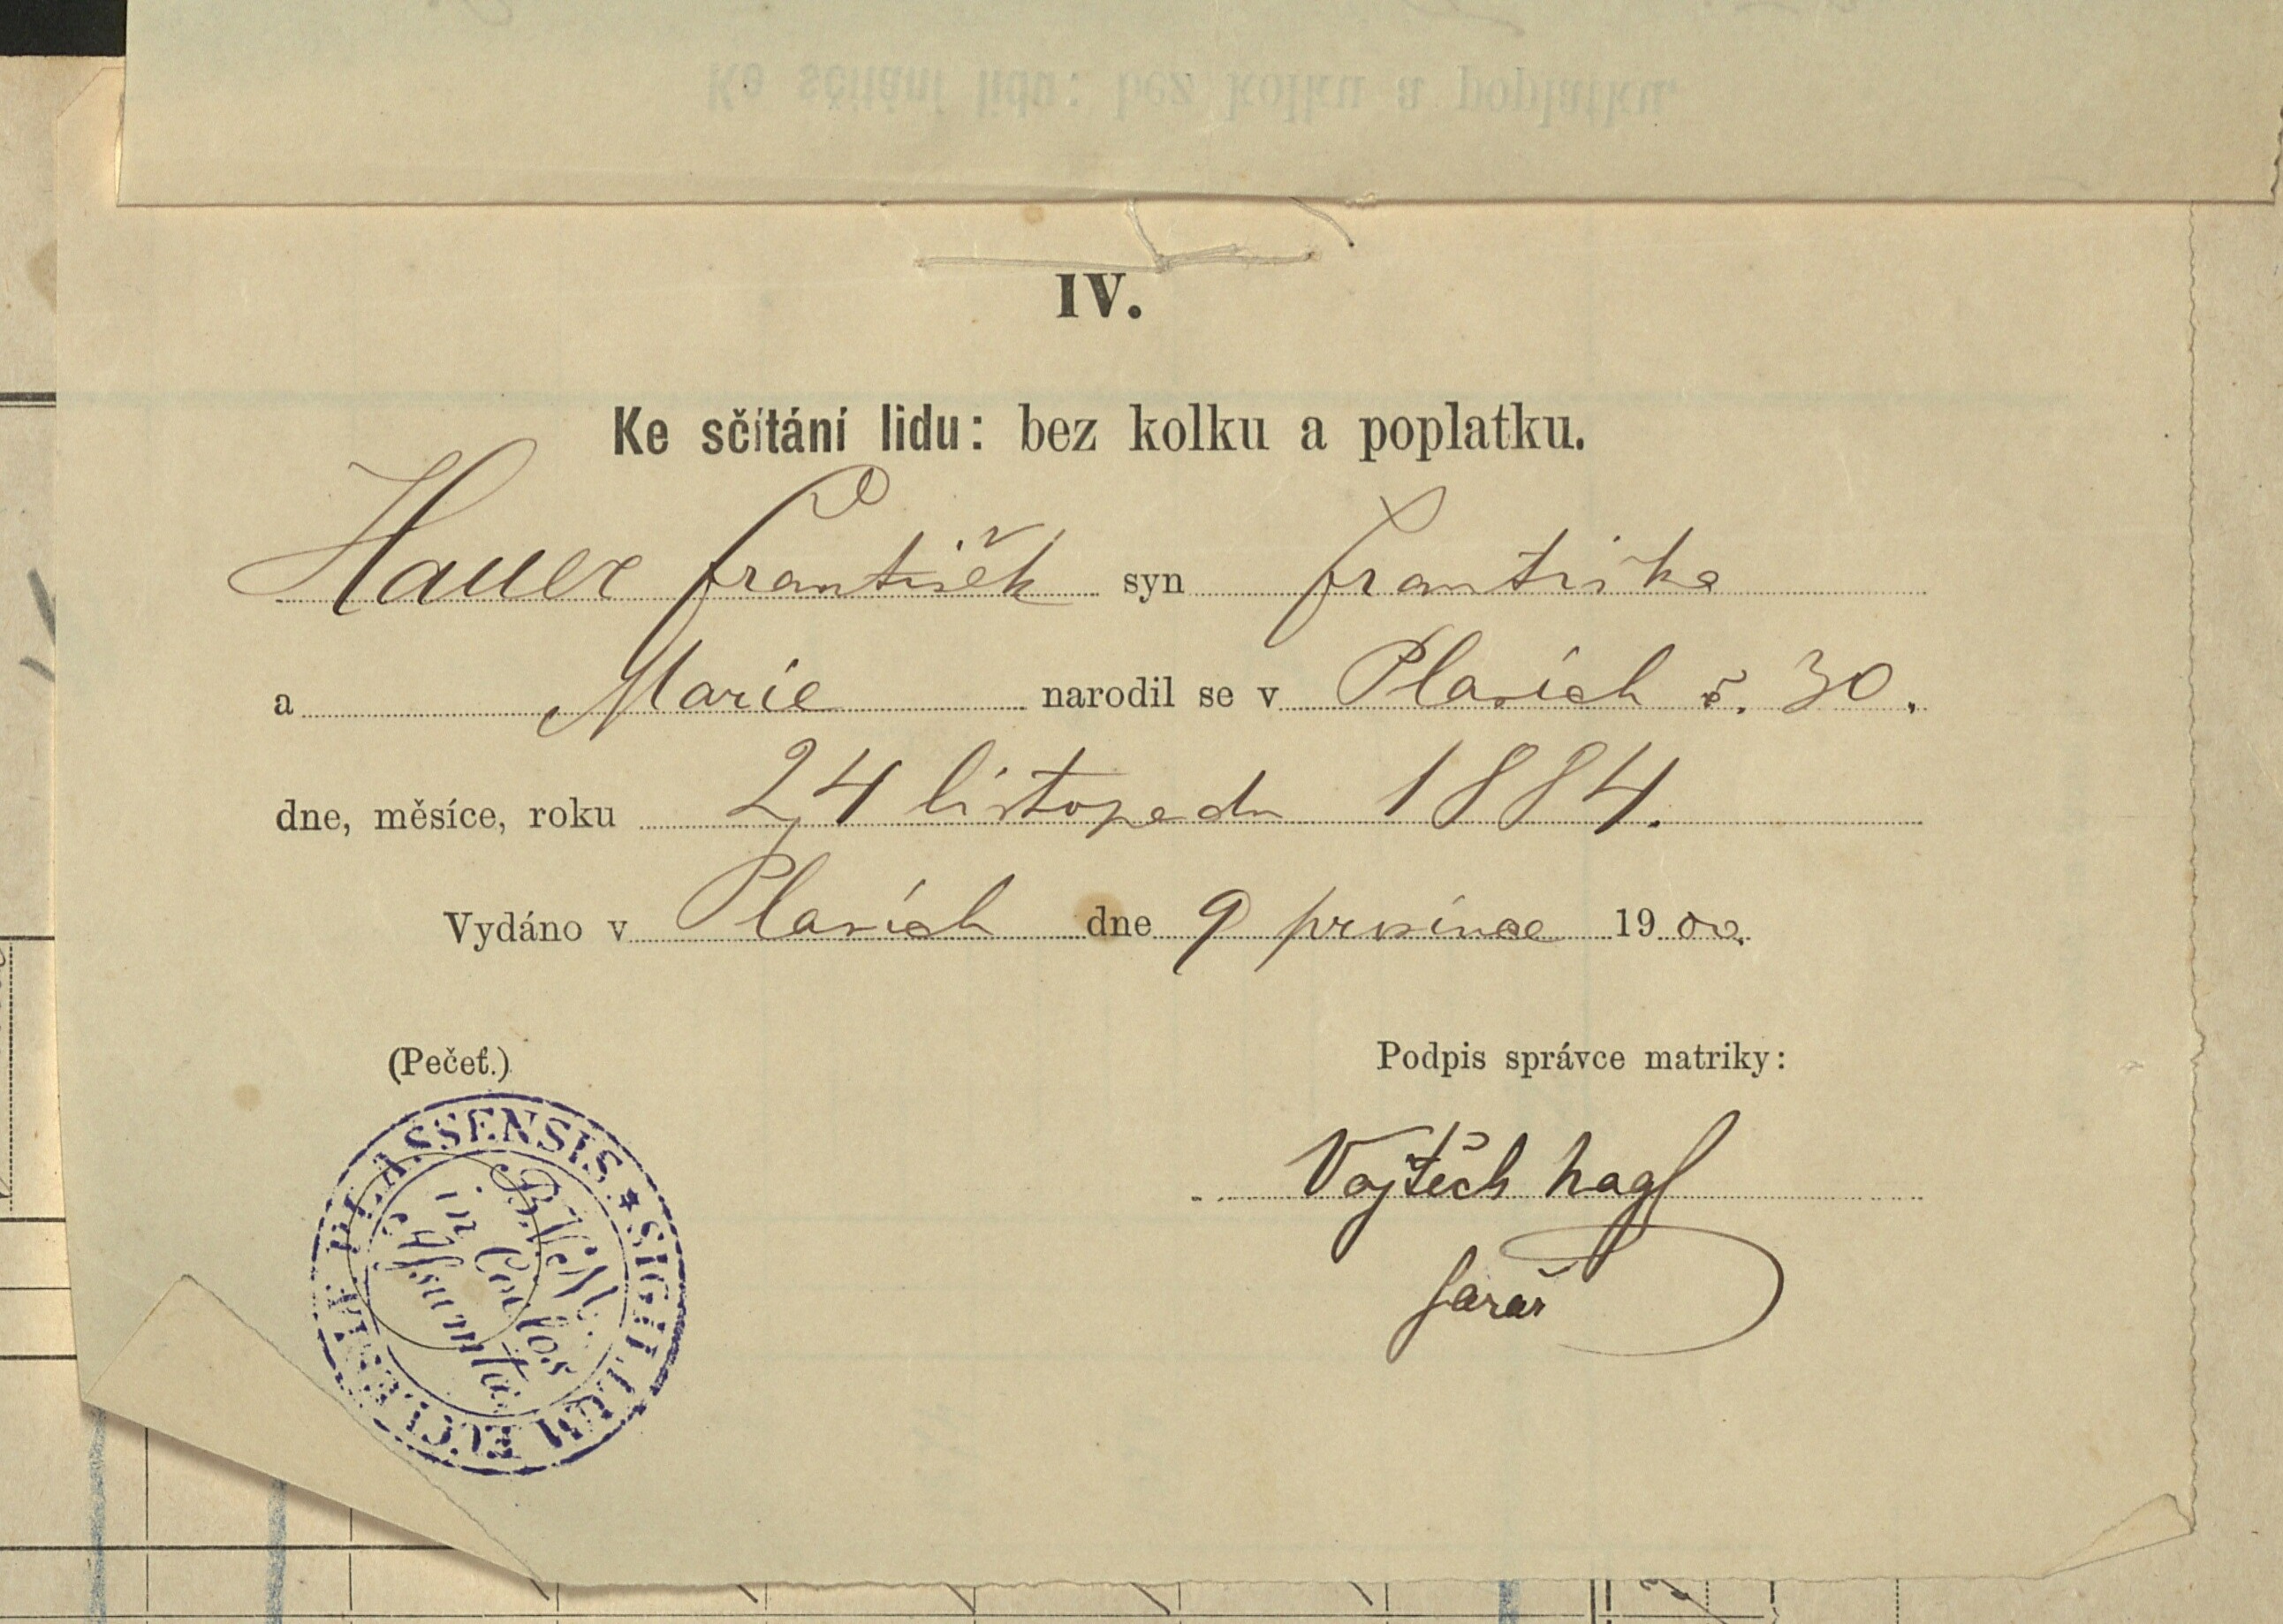 Ke sčítání lidu: bez kolku a poplatku.
IV.
Ke sčítání lidu: bez kolku a poplatku.
Hauer František syn Františka
a Marie narodil se v Plasích č. 30.
dne, měsíce, roku 24 listopadu 1884.
Vydáno v Plasích dne 9 prosince 1900.
(Pečeť.)
Podpis správce matriky:
Vojtěch Hagl
farář
SIGILLUM ECCLESIAE PLASSENSIS *
B.V.M.
in Coelos
Assumtae